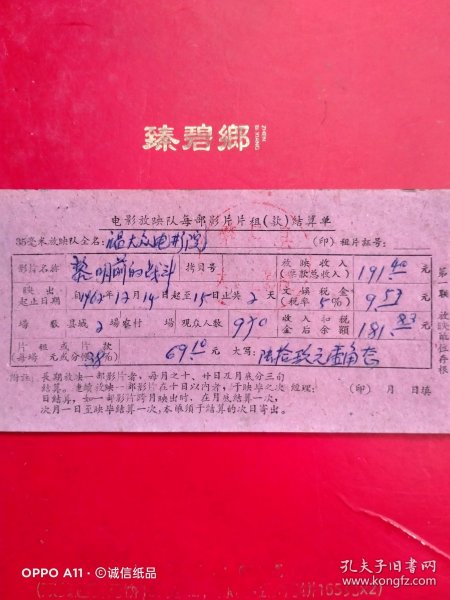 臻碧鄉
ZHEN
BI XIANG
电影放映队每部影片片租(款)结算单
35毫米放映队全名: 大众电影院 (印) 租片证号:
影片名称 黎明前的战斗 拷贝号 放映收入(票款总收入) 191.40 元
映出起止日期 自1962年12月14日起至15日止共2天 文娱税金(税率5%) 9.57 元
场数县城2场农村 场 观众人数 970 收入扣税金后余额 181.83 元
片租或片款(每场 元或分 38%) 69.10 元 大写: 陆拾玖元壹角
第一联 放映单位存根
附注: 长期放映一部影片者, 每月之十、廿日及月底分三旬
结算。连续放映一部影片在十日以内者, 于映毕之次 经理: (印) 月 日填
日结算, 如一部影片跨月映出时, 在月底结算一次,
次月一日至映毕结算一次, 本单须于结算的次日寄出。
OPPO A11 · ©诚信纸品
孔夫子旧书网
www.kongfz.com